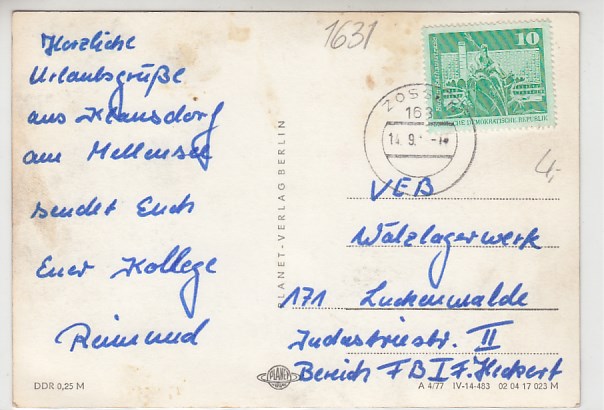 1631
Herzliche
Urlaubsgrüße
aus Klausdorf
am Mellensee
sendet Euch
Euer Kollege
Reimund
PLANET-VERLAG BERLIN
10
DEMOKRATISCHE REPUBLIK
ZOSSEN
163
4,-
VEB
Wälzlagerwerk
171 Luckenwalde
Industriestr. II
Bereich FB I F. Heckert
PLANET
DDR 0,25 M
A 4/77 IV-14-483 02 04 17 023 M